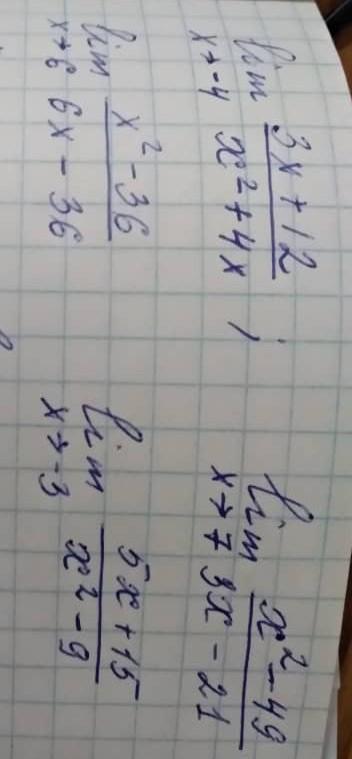 lim x→-4 (3x + 12)/(x² + 4x) ; lim x→7 (x² - 49)/(3x - 21)
lim x→6 (x² - 36)/(6x - 36) lim x→-3 (5x + 15)/(x² - 9)